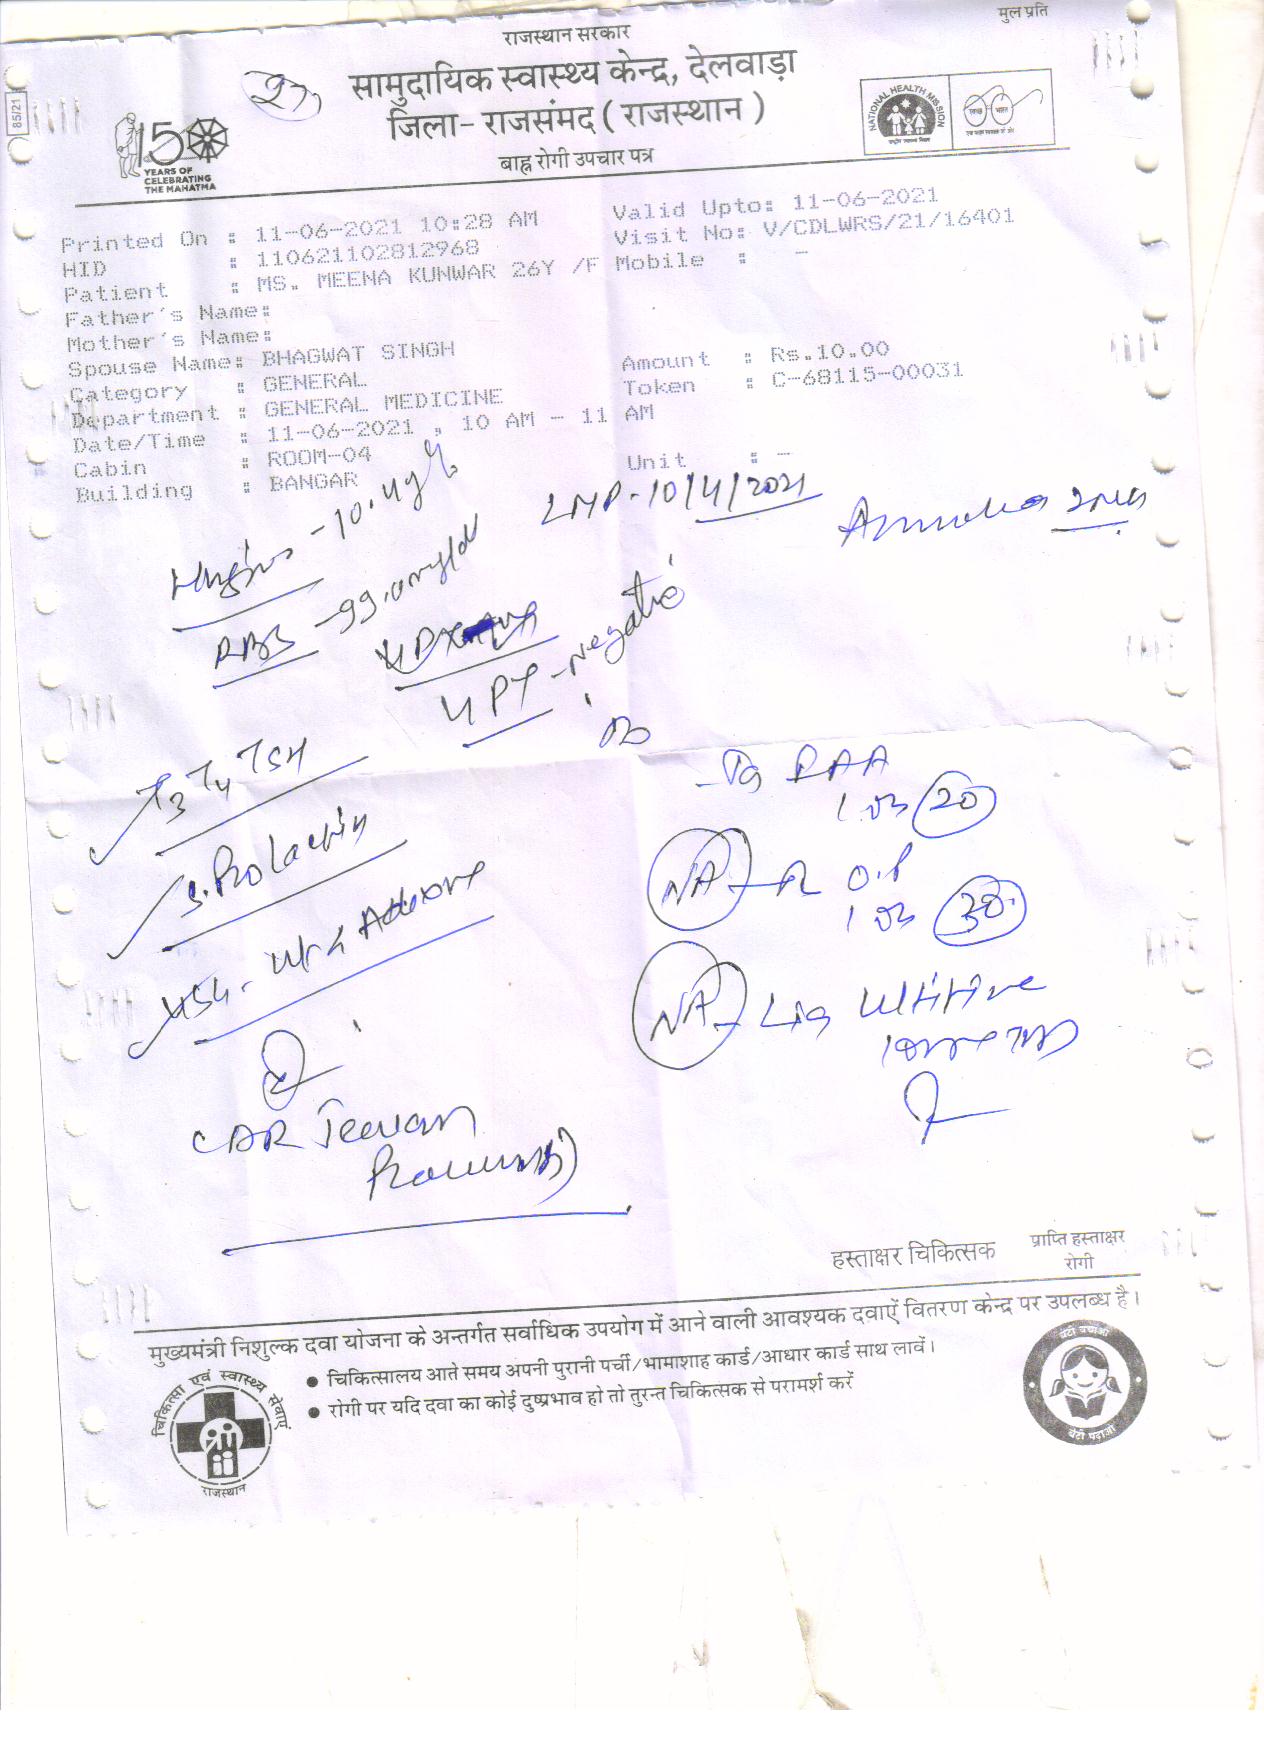 मुल प्रति
राजस्थान सरकार
सामुदायिक स्वास्थ्य केन्द्र, देलवाड़ा
जिला- राजसंमद ( राजस्थान )
बाह्य रोगी उपचार पत्र
85/21
27
150
YEARS OF
CELEBRATING
THE MAHATMA
NATIONAL HEALTH MISSION
Printed On : 11-06-2021 10:28 AM Valid Upto: 11-06-2021
HID : 110621102812968 Visit No: V/CDLWRS/21/16401
Patient : MS. MEENA KUNWAR 26Y /F Mobile : -
Father's Name:
Mother's Name:
Spouse Name: BHAGWAT SINGH Amount : Rs.10.00
Category : GENERAL Token : C-68115-00031
Department : GENERAL MEDICINE
Date/Time : 11-06-2021 , 10 AM - 11 AM
Cabin : ROOM-04 Unit : -
Building : BANGAR
- 10.4g%
LMP - 10/4/2021
RBS - 99.0mg/dl
UPT - Negative
T3 T4 TSH
S. Prolactin
USG -
FAA
20
NA
30
NA
हस्ताक्षर चिकित्सक
प्राप्ति हस्ताक्षर
रोगी
मुख्यमंत्री निशुल्क दवा योजना के अन्तर्गत सर्वाधिक उपयोग में आने वाली आवश्यक दवाऐं वितरण केन्द्र पर उपलब्ध है।
● चिकित्सालय आते समय अपनी पुरानी पर्ची/भामाशाह कार्ड/आधार कार्ड साथ लावें।
● रोगी पर यदि दवा का कोई दुष्प्रभाव हो तो तुरन्त चिकित्सक से परामर्श करें
चिकित्सा एवं स्वास्थ्य सेवाएं
राजस्थान
बेटी बचाओ
बेटी पढ़ाओ